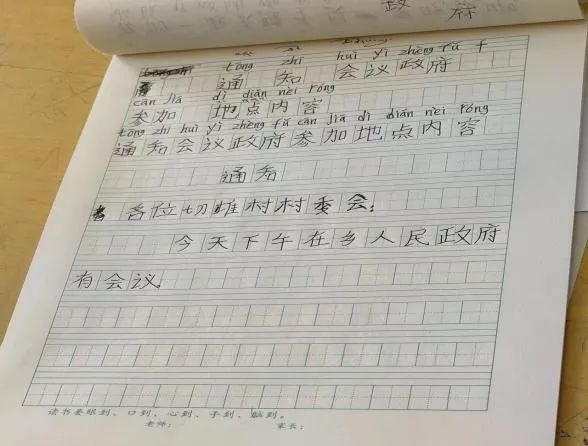 政府
tōng zhī huì yì zhèng fǔ
通 知 会议政府
cān jiā dì diǎn nèi róng
参加 地点内容
tōng zhī huì yì zhèng fǔ cān jiā dì diǎn nèi róng
通知会议政府参加地点内容
通知
各位切雄村村委会:
今天下午在乡人民政府
有会议。
读书要眼到、口到、心到、手到、脑到。
老师: 家长: